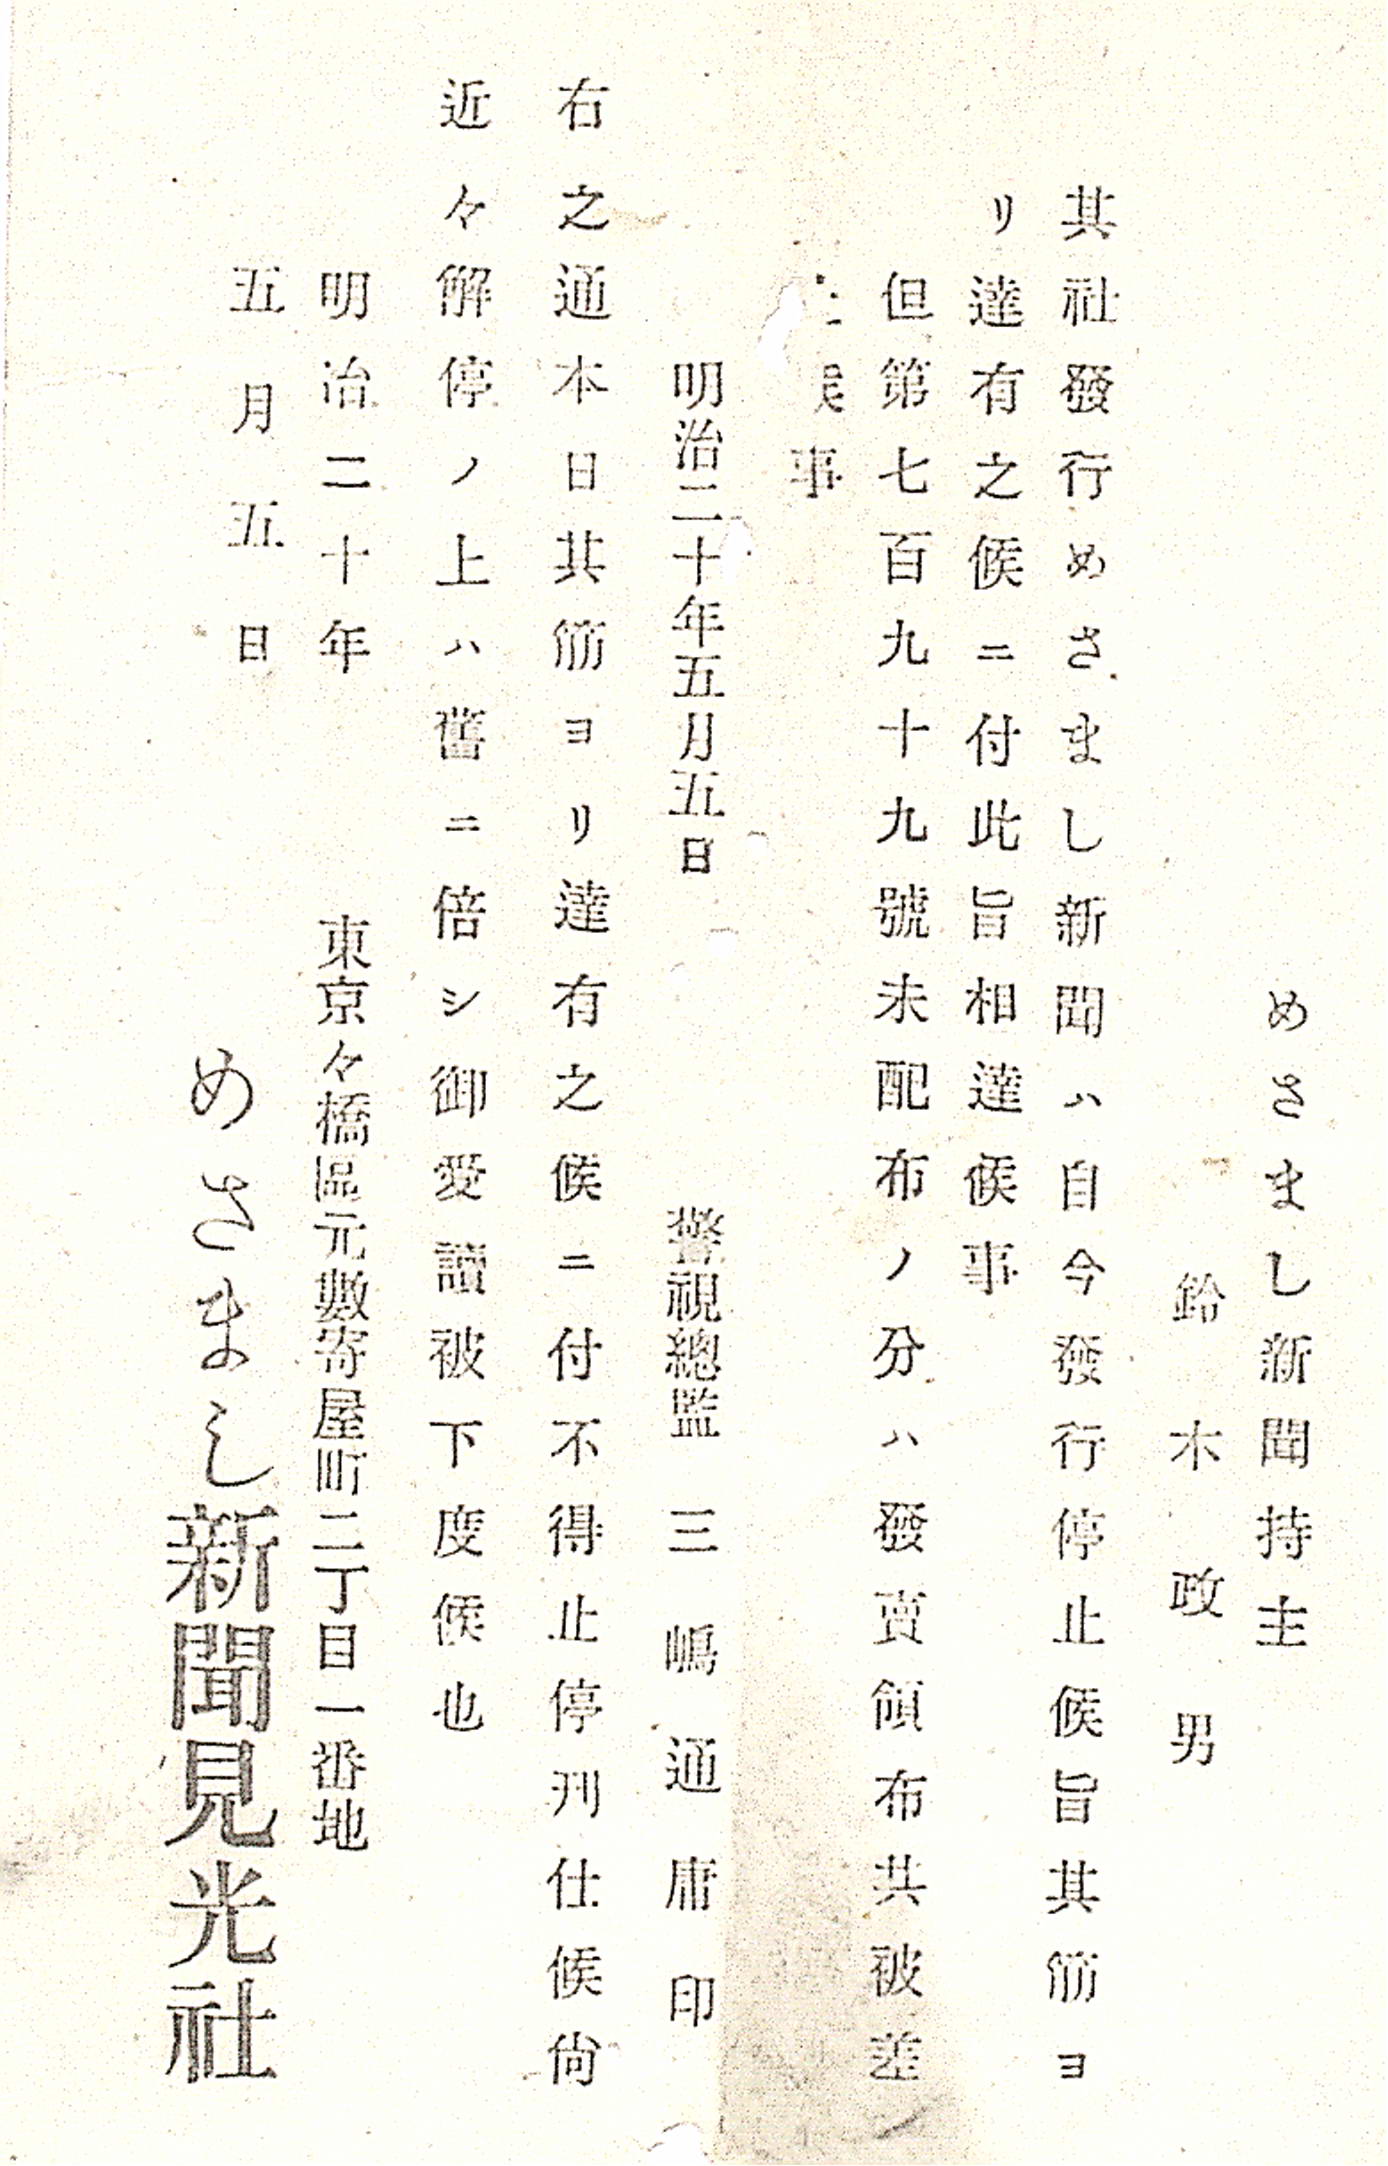 めさまし新聞持主
鈴木政男
其社發行めさまし新聞ハ自今發行停止候旨其筋ヨ
リ達有之候ニ付此旨相達候事
但第七百九十九號未配布ノ分ハ發賣頒布共被差
止候事
明治二十年五月五日　警視總監　三嶋通庸印
右之通本日其筋ヨリ達有之候ニ付不得止停刊仕候尙
近々解停ノ上ハ舊ニ倍シ御愛讀被下度候也
明治二十年　東京々橋區元數寄屋町二丁目一番地
五月五日　めさまし新聞見光社